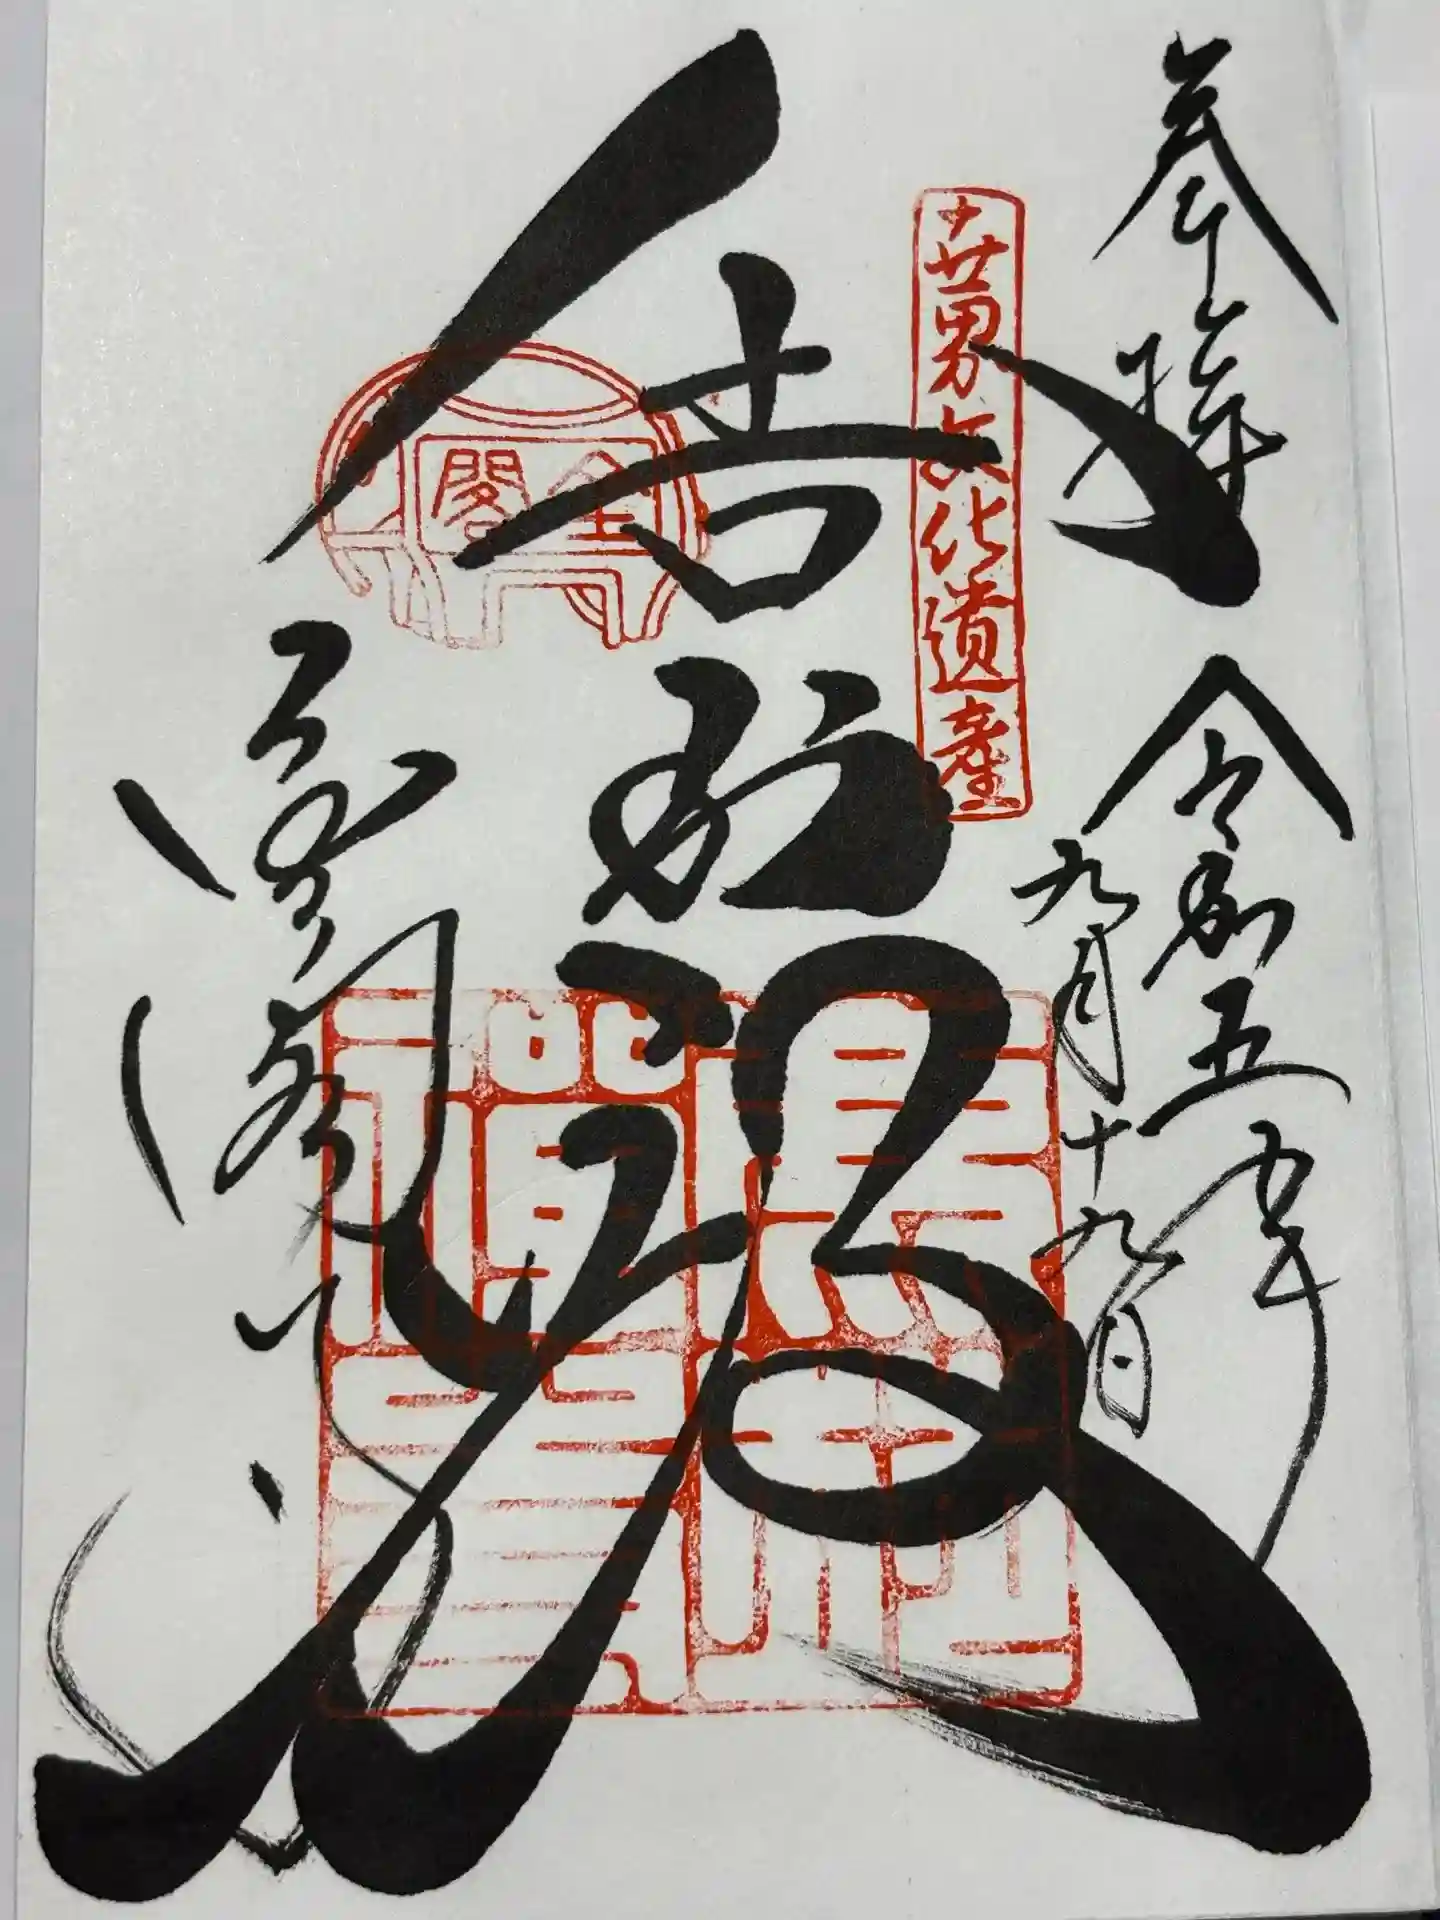 奉拝
令和五年
九月十九日
世界文化遺産
舎利殿
金閣
金閣寺